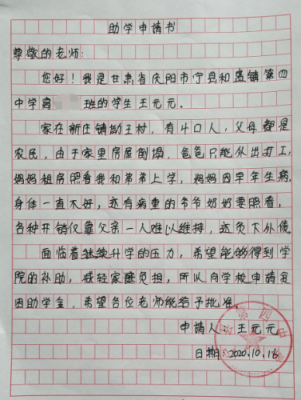 助学申请书
尊敬的老师:
您好!我是甘肃省庆阳市宁县和盛镇第四
中学高 班的学生王元元.
家在新庄镇坳王村,有4口人,父母都是
农民,由于家里房屋倒塌,爸爸只能从出打工,
妈妈租房照看我和弟弟上学,妈妈因早年生病,
身体一直不好,还有病重的爷爷奶奶要照看,
各种开销仅靠父亲一人难以维持,还负下外债
面临着继续升学的压力,希望能够得到学
院的补助,减轻家庭负担,所以向学校申请贫
困助学金,希望各位老师能给予批准.
申请人:王元元
日期:2020.10.16
第四